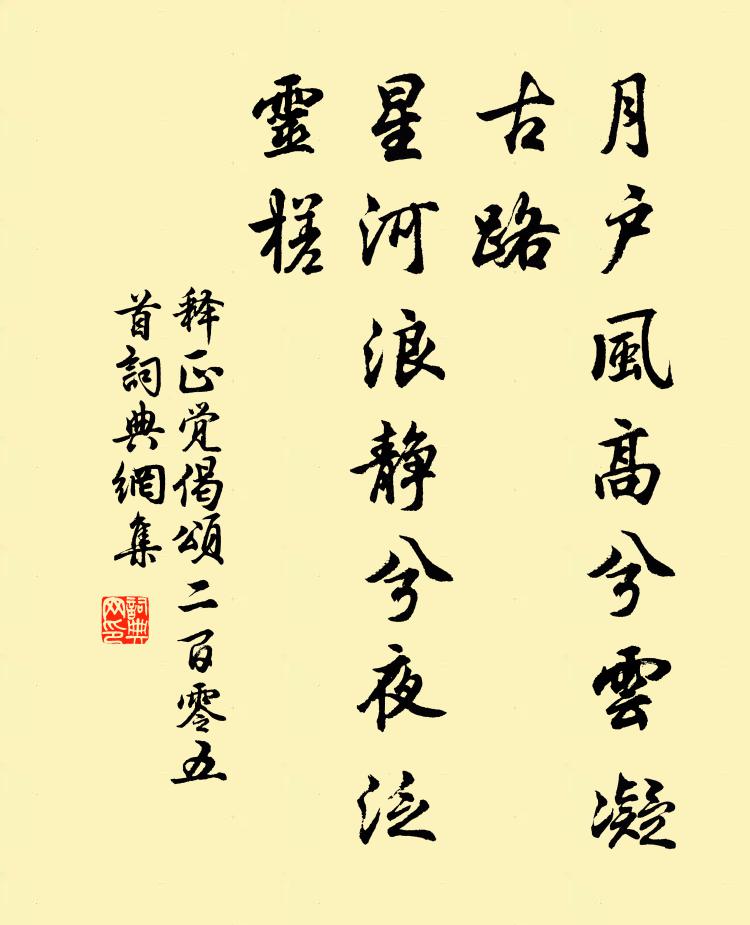 月戶風高兮雲凝
古路
星河浪靜兮夜泛
靈槎
释正觉偈頌二百零五
首詞典網集
詞典
网印